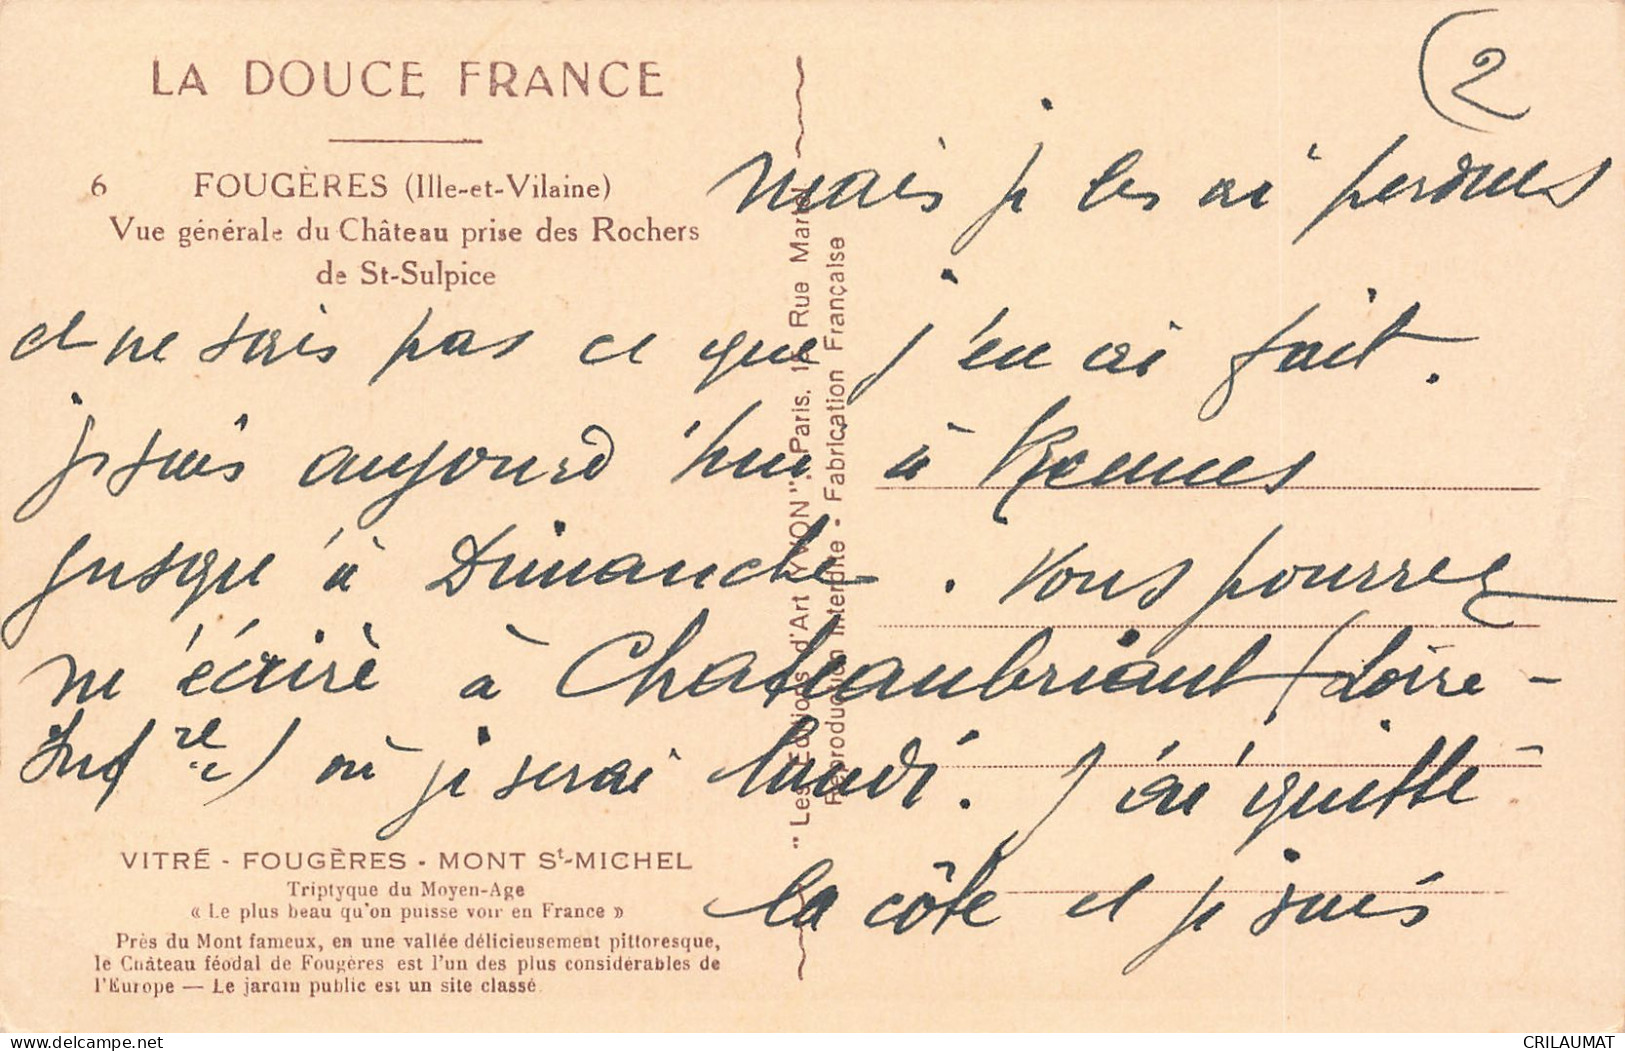 LA DOUCE FRANCE
6 FOUGÈRES (Ille-et-Vilaine)
Vue générale du Château prise des Rochers
de St-Sulpice
2
mais je les ai perdues
et ne sais pas ce que j'en ai fait.
je suis aujourd'hui à Rennes
jusqu'à Dimanche. Vous pourrez
m'écrire à Chateaubriant (Loire-
Infre) où je serai lundi. J'ai quitté
la côte et je suis
VITRÉ - FOUGÈRES - MONT St-MICHEL
Triptyque du Moyen-Age
« Le plus beau qu'on puisse voir en France »
Près du Mont fameux, en une vallée délicieusement pittoresque,
le Château féodal de Fougères est l'un des plus considérables de
l'Europe — Le jardin public est un site classé
"Les Editions d'Art YVON". Paris. 15 Rue Martel
Reproduction Interdite - Fabrication Française
delcampe.net
CRILAUMAT